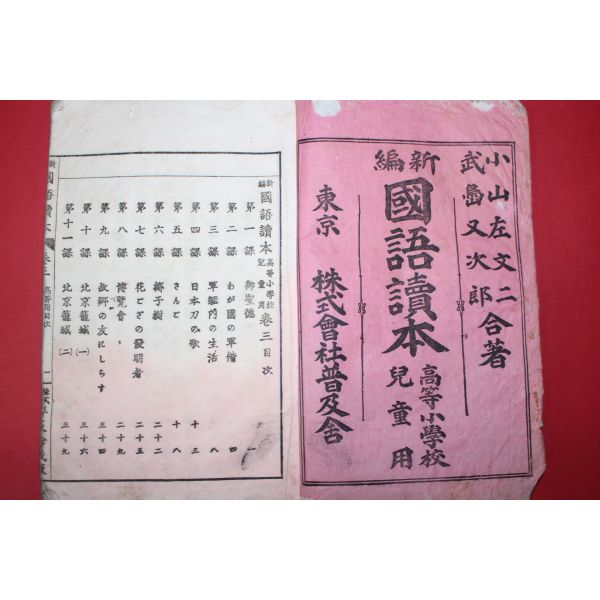 小山左文二
武島又次郎
合著
新編
國語讀本
高等小學校
兒童用
東京 株式會社普及舍
新編 國語讀本 高等小學校兒童用 卷三目次
第一課 御聖德 一
第二課 わが國の軍備 四
第三課 軍艦內の生活 八
第四課 日本刀の歌 十三
第五課 さんご 十八
第六課 椰子樹 二十二
第七課 花ござの發明者 二十五
第八課 博覽會 二十九
第九課 故鄕の友にしらす 三十四
第十課 北京籠城(一) 三十六
第十一課 北京籠城(二) 三十九
新編 國語讀本 卷三